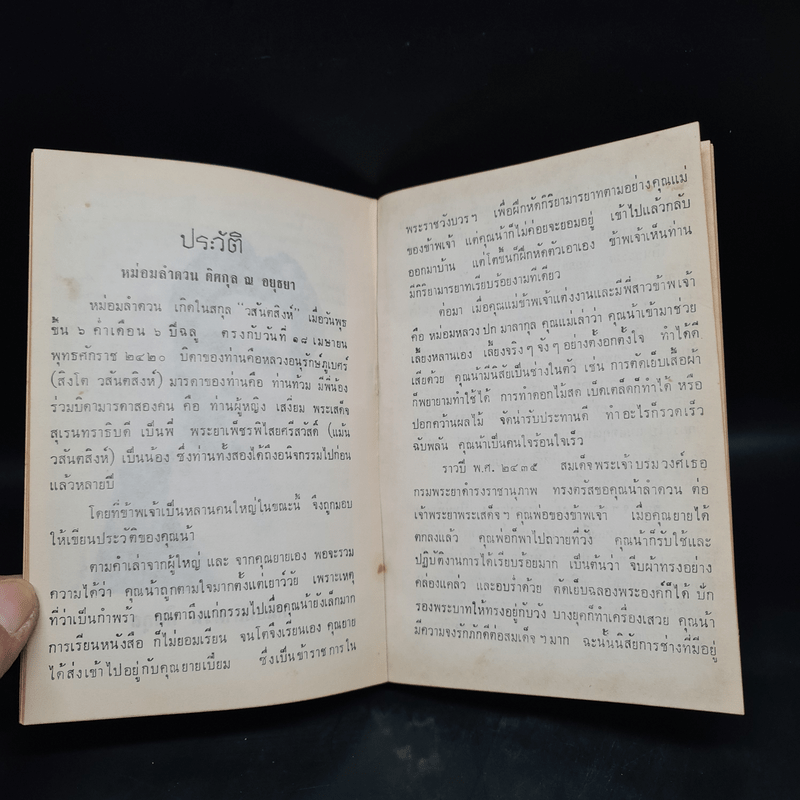 ประวัติ
หม่อมลำดวน ดิศกุล ณ อยุธยา
หม่อมลำดวน เกิดในสกุล "วสันตสิงห์" เมื่อวันพุธ
ขึ้น ๖ ค่ำเดือน ๖ ปีฉลู ตรงกับวันที่ ๑๘ เมษายน
พุทธศักราช ๒๔๒๐ บิดาของท่านคือหลวงอนุรักษ์ภูเบศร์
(สิงโต วสันตสิงห์) มารดาของท่านคือ ท่านท้วม มีพี่น้อง
ร่วมบิดามารดาสองคน คือ ท่านผู้หญิง เสงี่ยม พระเสด็จ
สุเรนทราธิบดี เป็นพี่ พระยาเพ็ชรพิไสยศรีสวัสดิ์ (แม้น
วสันตสิงห์) เป็นน้อง ซึ่งท่านทั้งสองได้ถึงอนิจกรรมไปก่อน
แล้วหลายปี
โดยที่ข้าพเจ้าเป็นหลานคนใหญ่ในขณะนี้ จึงถูกมอบ
ให้เขียนประวัติของคุณน้า
ตามคำเล่าจากผู้ใหญ่ และ จากคุณยายเอง พอจะรวม
ความได้ว่า คุณน้าถูกตามใจมากตั้งแต่เยาว์วัย เพราะเหตุ
ที่ว่าเป็นกำพร้า คุณตาถึงแก่กรรมไปเมื่อคุณน้ายังเล็กมาก
การเรียนหนังสือ ก็ไม่ยอมเรียน จนโตจึงเรียนเอง คุณยาย
ได้ส่งเข้าไปอยู่กับคุณยายเปี่ยม ซึ่งเป็นข้าราชการใน
พระราชวังบวรฯ เพื่อฝึกหัดกิริยามารยาทตามอย่างคุณแม่
ของข้าพเจ้า แต่คุณน้าก็ไม่ค่อยจะยอมอยู่ เข้าไปแล้วกลับ
ออกมาบ้าน แต่โตขึ้นก็ฝึกหัดตัวเอาเอง ข้าพเจ้าเห็นท่าน
มีกิริยามารยาทเรียบร้อยงามทีเดียว
ต่อมา เมื่อคุณแม่ข้าพเจ้าแต่งงานและมีพี่สาวข้าพเจ้า
คือ หม่อมหลวง ปก มาลากุล คุณแม่เล่าว่า คุณน้าเข้ามาช่วย
เลี้ยงหลานเอง เลี้ยงจริงๆ จังๆ อย่างตั้งอกตั้งใจ ทำได้ดี
เสียด้วย คุณน้ามีนิสัยเป็นช่างในตัว เช่น การตัดเย็บเสื้อผ้า
ก็พยายามทำใช้ได้ การทำดอกไม้สด เบ็ดเตล็ดก็ทำได้ หรือ
ปอกคว้านผลไม้ จัดน่ารับประทานดี ทำอะไรก็รวดเร็ว
ฉับพลัน คุณน้าเป็นคนใจร้อนใจเร็ว
ราวปี พ.ศ. ๒๔๓๕ สมเด็จพระเจ้าบรมวงศ์เธอ
กรมพระยาดำรงราชานุภาพ ทรงตรัสขอคุณน้าลำดวน ต่อ
เจ้าพระยาพระเสด็จฯ คุณพ่อของข้าพเจ้า เมื่อคุณยายได้
ตกลงแล้ว คุณพ่อก็พาไปถวายที่วัง คุณน้าก็รับใช้และ
ปฏิบัติงานการได้เรียบร้อยมาก เป็นต้นว่า จีบผ้าทรงอย่าง
คล่องแคล่ว และอบร่ำด้วย ตัดเย็บฉลองพระองค์ก็ได้ ปัก
รองพระบาทให้ทรงอยู่กับวัง บางยุคก็ทำเครื่องเสวย คุณน้า
มีความจงรักภักดีต่อสมเด็จฯ มาก ฉะนั้นนิสัยการช่างที่มีอยู่